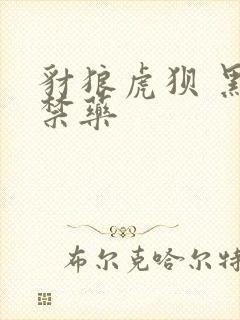 豺狼虎狈 黑
禁药
布尔克哈尔特